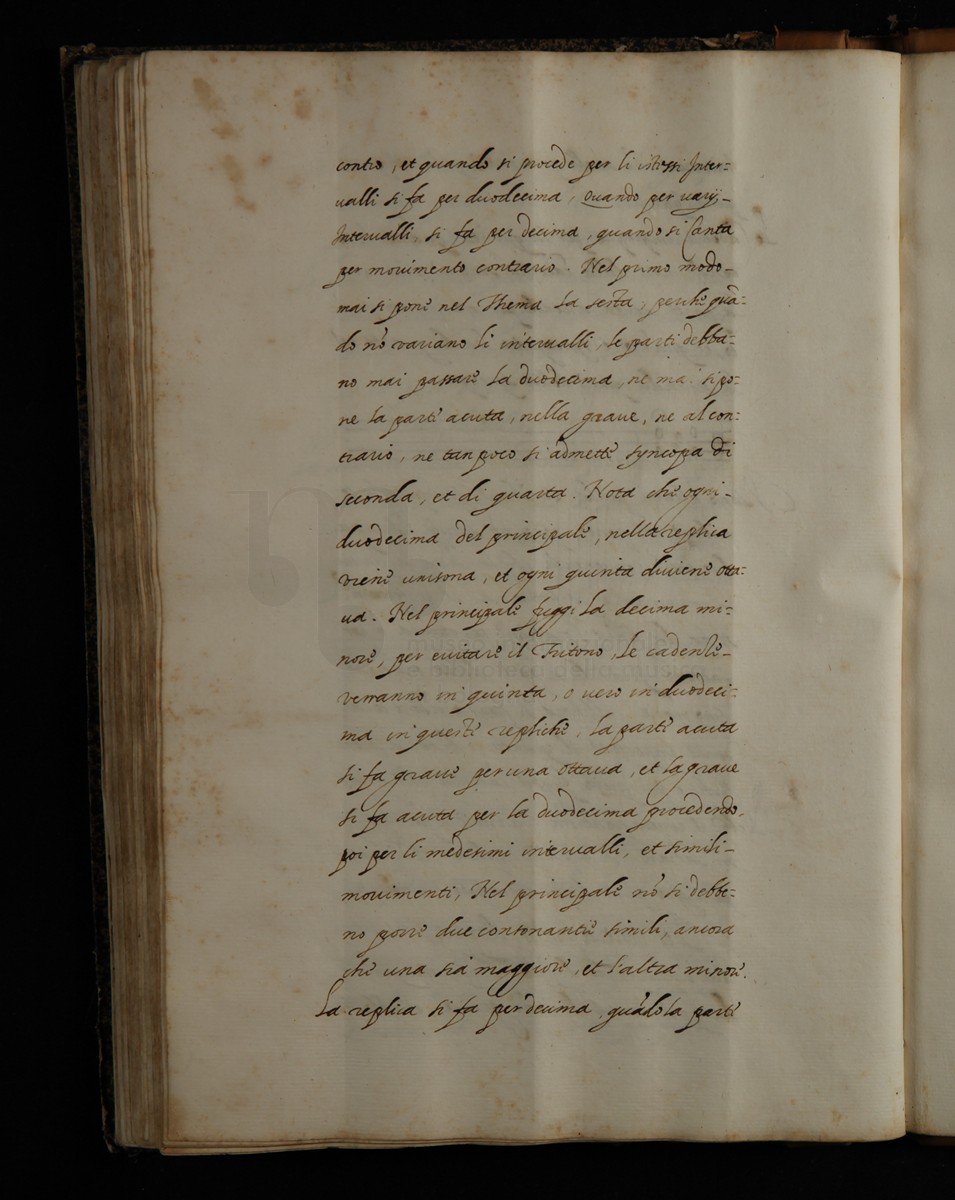 contro, et quando si procede per li istessi Inter=
ualli si fa per duodecima, quando per uarij-
Interualli, si fa per decima, quando si Canta
per mouimento contrario. Nel primo modo-
mai si pone nel Thema la sesta, perche quã=
do nõ variano li interualli, le parti debba=
no mai passare la duodecima, ne mai si po=
ne la parte acuta, nella graue, ne al con=
trario, ne tan poco si admette syncopa di
seconda, et di quarta. Nota che ogni-
duodecima del principale, nella replica
viene unisona, et ogni quinta diviene otta=
ua. Nel principale fuggi la decima mi=
nore, per euitare il Tritono, le cadenze-
verranno in quinta, o uero in duodeci=
ma in queste repliche, la parte acuta
si fa graue per una ottaua, et la graue
si fa acuta per la duodecima procedendo,
poi per li medesimi interualli, et simili-
mouimenti, Nel principale nõ si debbe=
no porre due consonantie simili, ancora
che una sia maggiore, et l'altra minore.
La replica si fa per decima, quãdo la parte